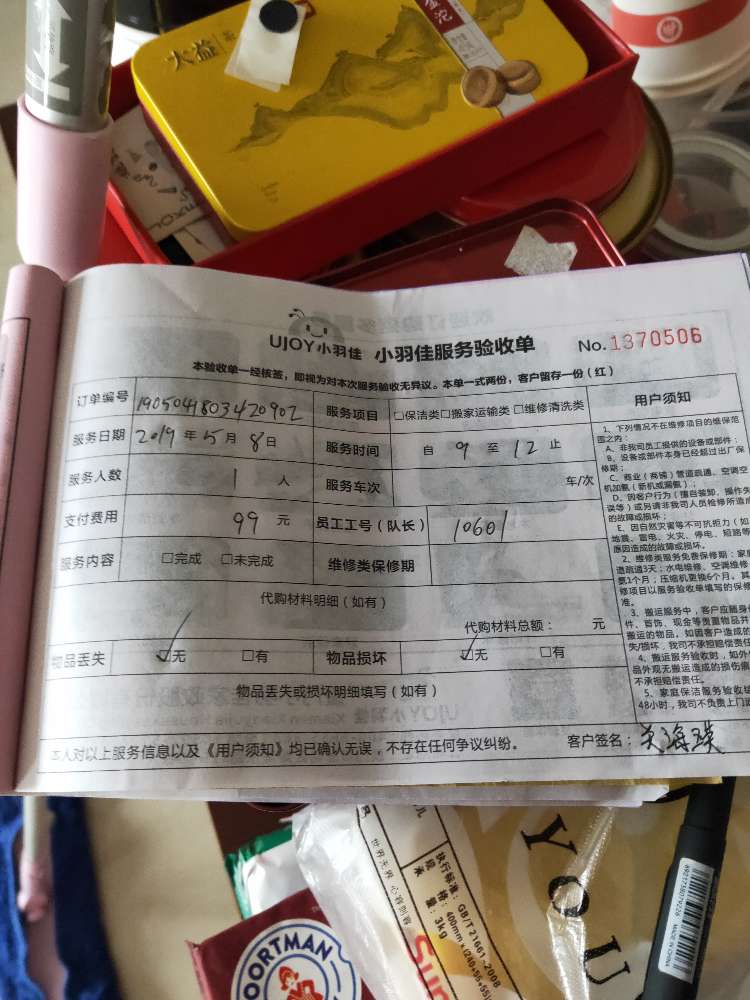 大益
UJOY小羽佳 小羽佳服务验收单 No.1370506
本验收单一经核签，即视为对本次服务验收无异议。本单一式两份，客户留存一份（红）
订单编号 1905041803420902 服务项目 □保洁类□搬家运输类 □维修清洗类 用户须知
服务日期 2019年5月8日 服务时间 自 9 至 12 止
服务人数 1 人 服务车次 车/次
支付费用 99 元 员工工号（队长） 10601
服务内容 □完成 □未完成 维修类保修期
代购材料明细（如有）
代购材料总额： 元
物品丢失 ☑无 □有 物品损坏 ☑无 □有
物品丢失或损坏明细填写（如有）
本人对以上服务信息以及《用户须知》均已确认无误，不存在任何争议纠纷。 客户签名：
1、下列情况不在维修项目的维保范
围之内：
A、非我司员工提供的设备或部件；
B、设备或部件本身已经超过出厂保
修期；
C、商业（商铺）管道疏通、空调空
机加氨（新机或漏氨）；
D、因客户行为（擅自装卸、操作失
误等）或另请非我司人员检修所造成
的故障或损坏；
E、因自然灾害等不可抗拒力（如
地震、雷电、火灾、停电、短路等
原因造成的故障或损坏。
2、维修类服务免费保修期：家庭
道疏通3天；水电维修、空调维修
氨1个月；压缩机更换6个月。其
修项目以服务验收单填写的保修
准。
3、搬运服务中，客户应随身
件、首饰、现金等贵重物品并
搬运的物品，如因客户造成的
失/损坏，我司不承担赔偿责任
4、搬运服务验收时，如外
品外观无搬运造成的损伤痕
不承担赔偿责任。
5、家庭保洁服务验收
48小时，我司不负责上门
世界无界 心容则容
执行标准：GB/T 21661-2008
规 格：400mm×(240+55+55)
承 重：3kg
YOU
OORTMAN
MADE IN CHINA